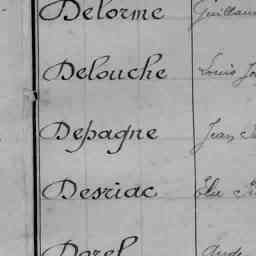 Delorme Guillau
Delouche Louis Jo
Depagne Jean
Desriac Elie
Dorel